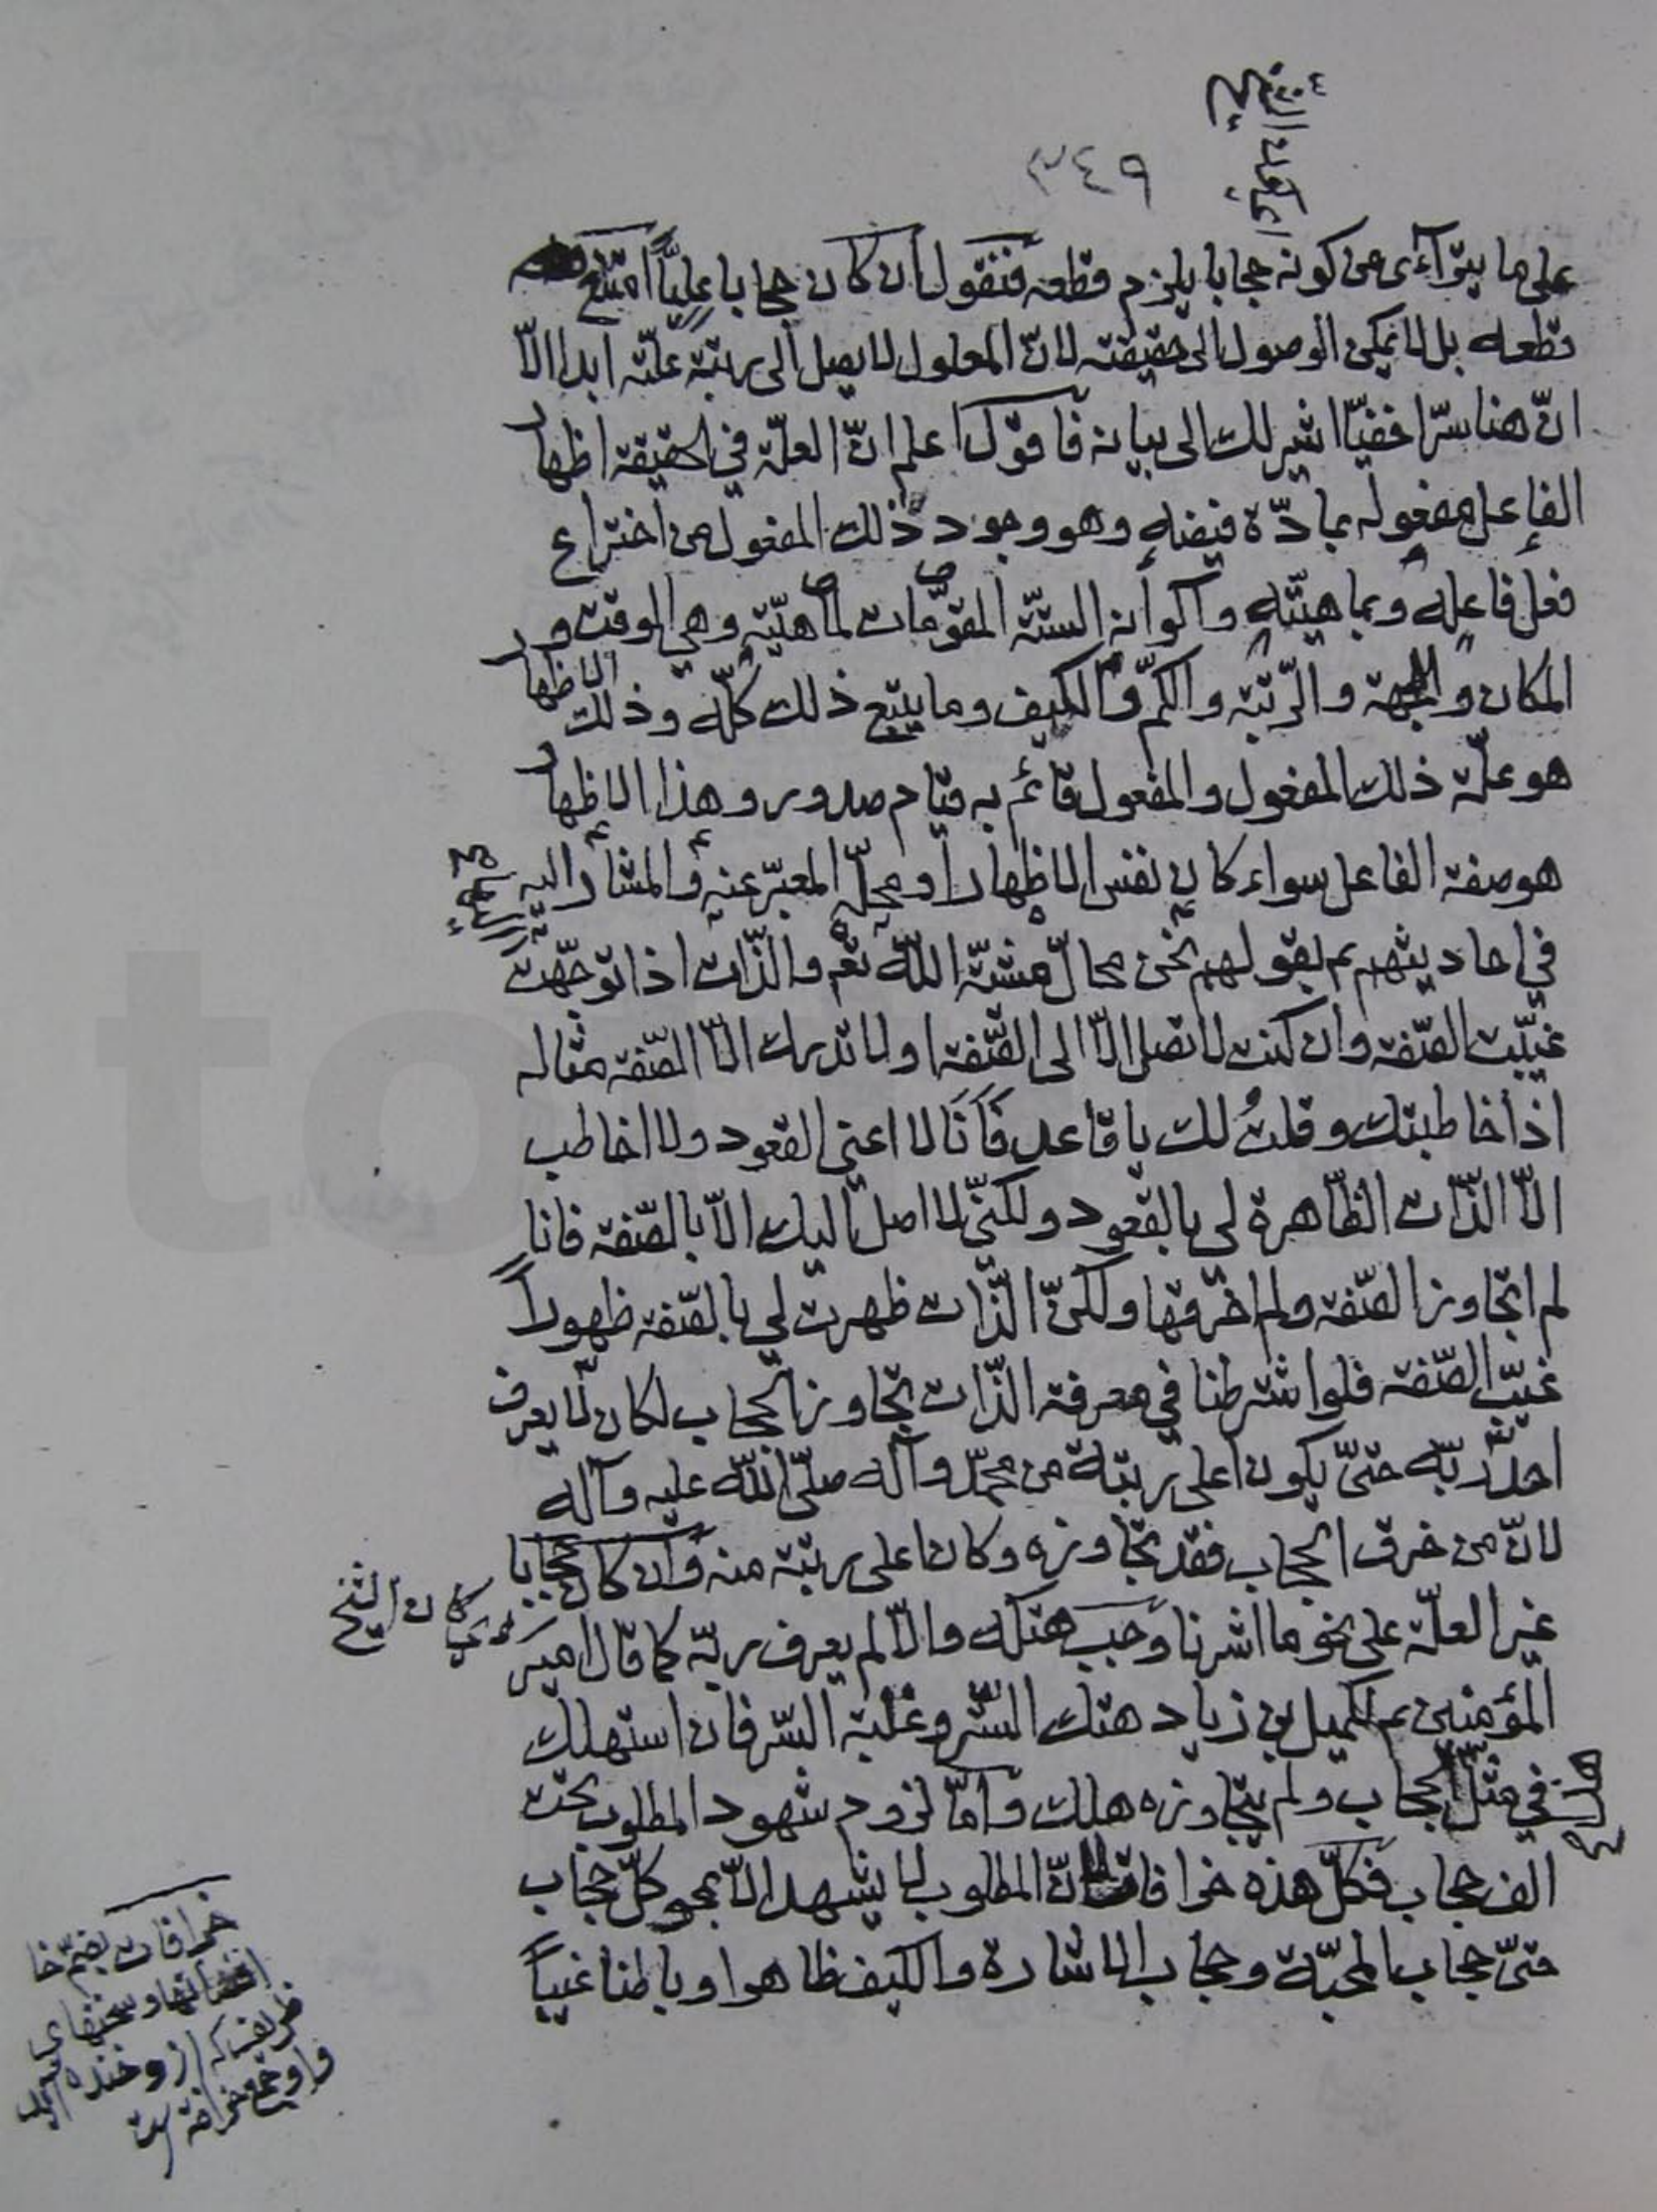 ٣٤٩
على ما يتراءى من كونه حجابا يلزم قطعه فنقول ان كان حجابا عليّاً امتنع
قطعه بل لا يمكن الوصول الى حقيقته لانّ المعلول لا يصل الى رتبة علّته ابدا الّا
انّ هنا سرّا خفيّا اشير لك الى بيانه فاقول اعلم انّ العلّة في الحقيقة اظهار
الفاعل مفعوله بمادّة فيضه وهو وجود ذلك المفعول من اختراع
فعل فاعله وبماهيّته واكوانه الستّة المقوّمات لماهيّته وهي الوقت و
المكان والجهة والرّتبة والكمّ والكيف وما يتبع ذلك كلّه وذلك الاظهار
هو علّة ذلك المفعول والمفعول قائم به قيام صدور وهذا الاظهار
هو صفة الفاعل سواء كان نفس الاظهار او محلّه المعبّر عنه والمشار اليه
في احاديثهم ع بقولهم نحن محالّ مشيّة اللّه نعم والذّات اذا توجّهت
غيّبت الصّفة وان كنت لا تصل الّا الى الصّفة ولا تدرك الّا الصّفة مثاله
اذا خاطبتك وقلتُ لك يا قاعد فَاَنَا لا اعني القعود ولا اخاطب
الّا الذّات الظّاهرة لي بالقعود ولكنّي لا اصل اليك الّا بالصّفة فانا
لم اتجاوز الصّفة ولم اخرقها ولكنّ الذّات ظهرت لي بالصّفة ظهوراً
غيّب الصّفة فلو اشترطنا في معرفة الذّات تجاوز الحجاب لكان لا يعرف
احد ربّه حتىّ يكون اعلى رتبة من محمّد وآله صلّى اللّه عليه وآله
لانّ من خرق الحجاب فقد تجاوزه وكان اعلى رتبة منه وان كان حجابا
غير العلّة على نحو ما اشرنا وجب هتكه والّا لم يعرف ربّه كما قال امير
المؤمنين ع لكميل بن زياد هتك السّتر وغلبة السّر فان استهلك
في مثل الحجاب ولم يتجاوزه هلك وامّا لزوم شهود المطلوب تحت
الف حجاب فكلّ هذه خرافات لانّ المطلوب لا يشهد الّا بمحو كلّ حجاب
حتىّ حجاب المحبّة وحجاب الاشارة والكيف ظاهرا وباطنا غيباً
كان الشيخ
خرافات بضمّ خا
افسانها و سخنهاى
ظريف كه از و خنده آيد